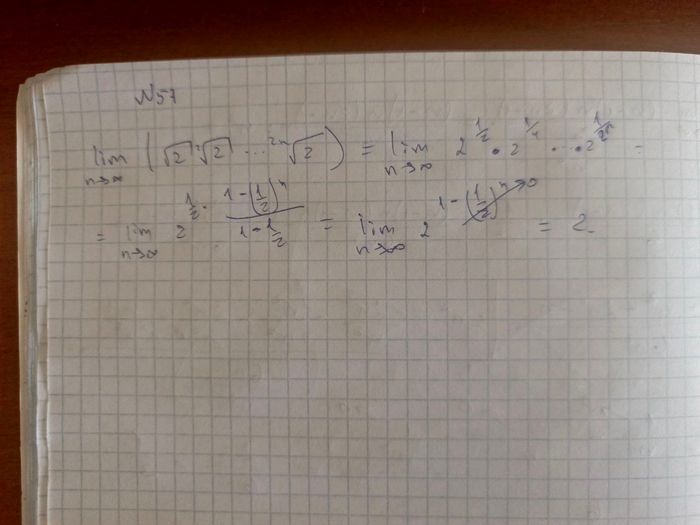 N57
lim n→∞ (√2 ²√2 ... ²ⁿ√2) = lim n→∞ 2^(1/2) · 2^(1/4) · ... · 2^(1/2ⁿ) =
= lim n→∞ 2^(1/2 · (1-(1/2)ⁿ)/(1-1/2)) = lim n→∞ 2^(1-(1/2)ⁿ→0) = 2